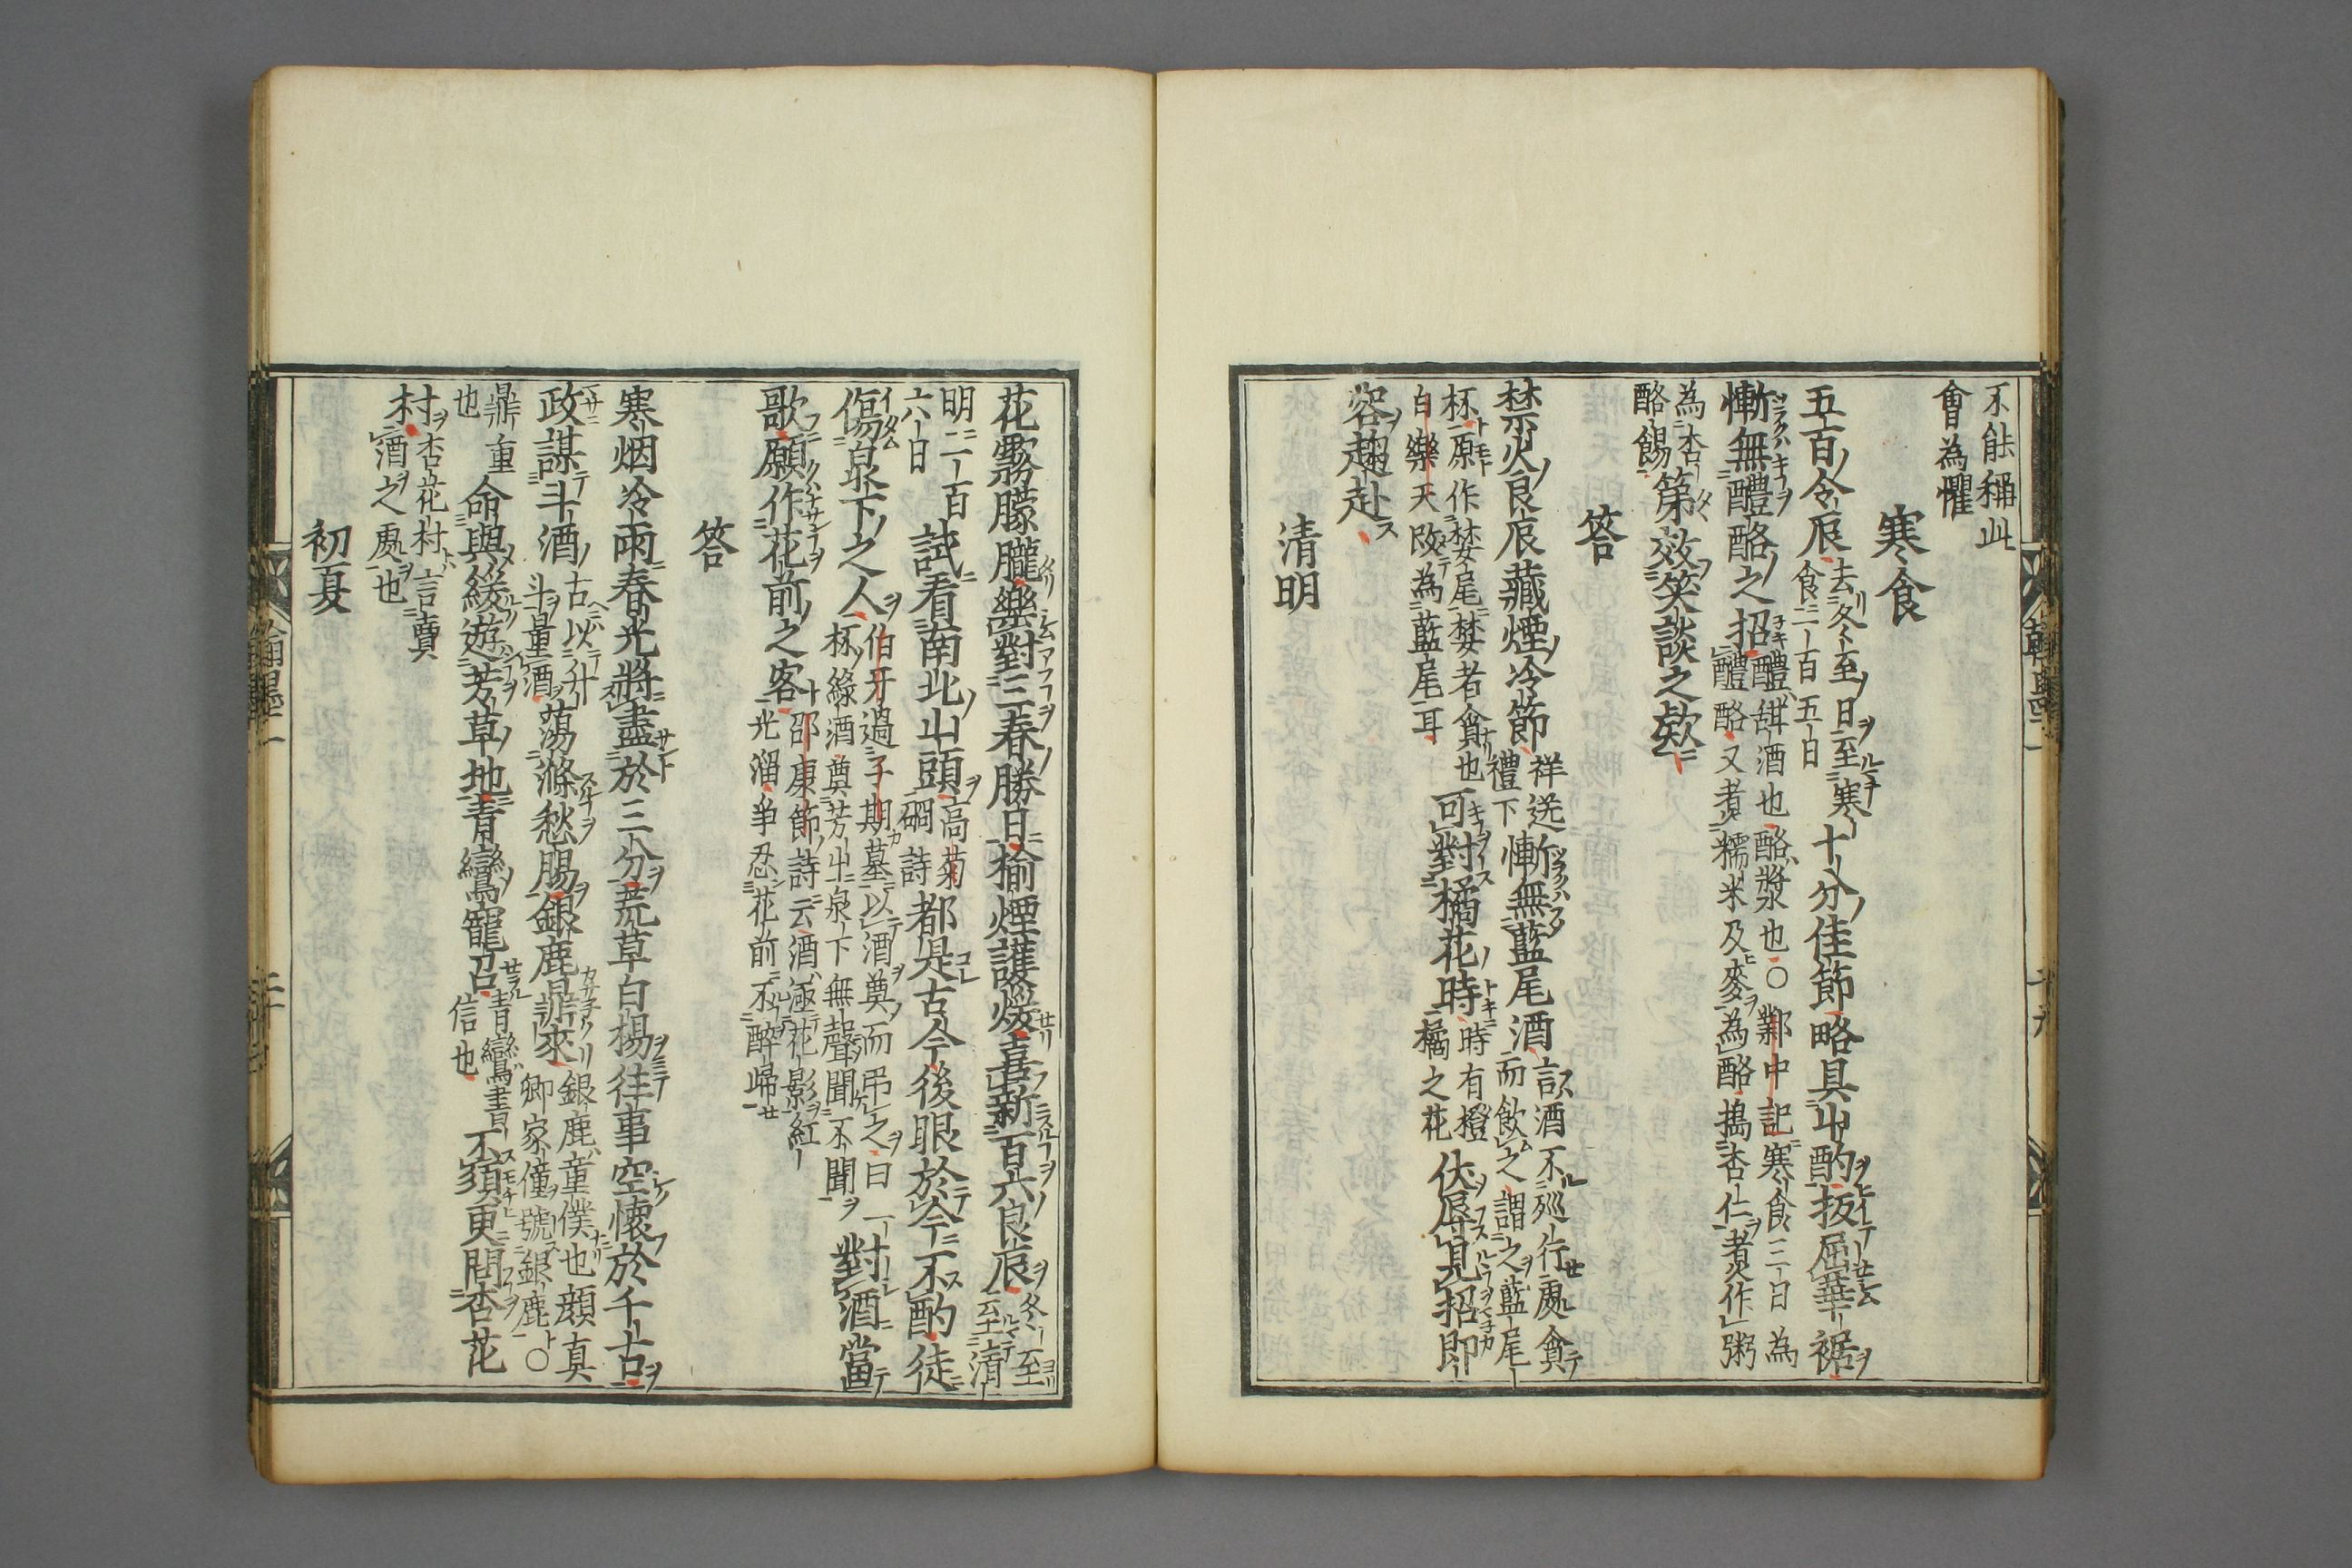 不能稱此
會為懼
寒食
五百令辰去冬至日至寒
食一百五日
十分佳節略具山酌扳屈華裾
慚無醴酪之招醴甜酒也酪漿也○鄴中記寒食三日為
醴酪又煮糯米及麥為酪搗杏仁煮作粥
為杏
酪餳
第效笑談之欵
答
禁火良辰藏煙冷節祥送
禮下
慚無藍尾酒言酒不廵行處貪
而飲之謂之藍尾
杯原作婪尾婪者貪也
白樂天改為藍尾耳
可對橘花時時有橙
橘之花
伏辱見招即
容趨赴
清明
花霧朦朧樂對三春勝日榆煙護煖喜新百六良辰冬至
至清
明一百
六日
試看南北山頭高菊
磵詩
都是古今後眼於今不酌徒
傷泉下之人伯牙過子期墓以酒奠而弔之曰一
杯綠酒奠芳山泉下無聲聞不聞
對酒當
歌願作花前之客邵康節詩云酒凾花影紅
光溜爭忍花前不醉歸
答
寒烟冷雨春光將盡於三分荒草白楊往事空懷於千古
政謀斗酒古以升
斗量酒
蕩滌愁腸銀鹿鼎來銀鹿童僕也顔真
卿家僮號銀鹿○
鼎重
也
命與緩遊芳草地青鸞寵召青鸞書
信也
不須更問杏花
村杏花村言賣
村酒之處也
初夏
翰墨一